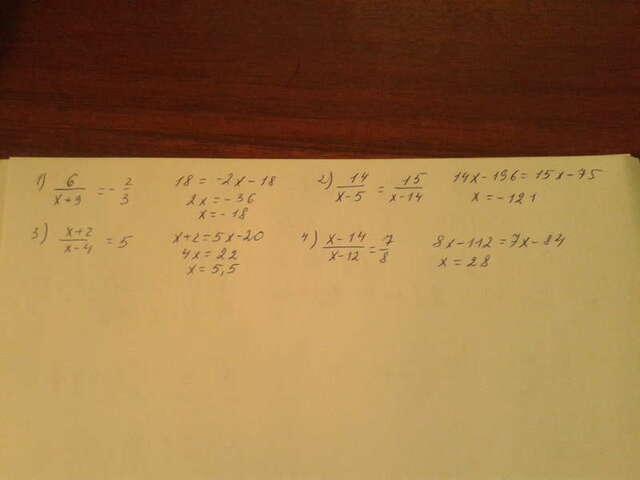 1) 6/(x+9) = -2/3
18 = -2x-18
2x = -36
x = -18
2) 14/(x-5) = 15/(x-14)
14x-196 = 15x-75
x = -121
3) (x+2)/(x-4) = 5
x+2 = 5x-20
4x = 22
x = 5,5
4) (x-14)/(x-12) = 7/8
8x-112 = 7x-84
x = 28